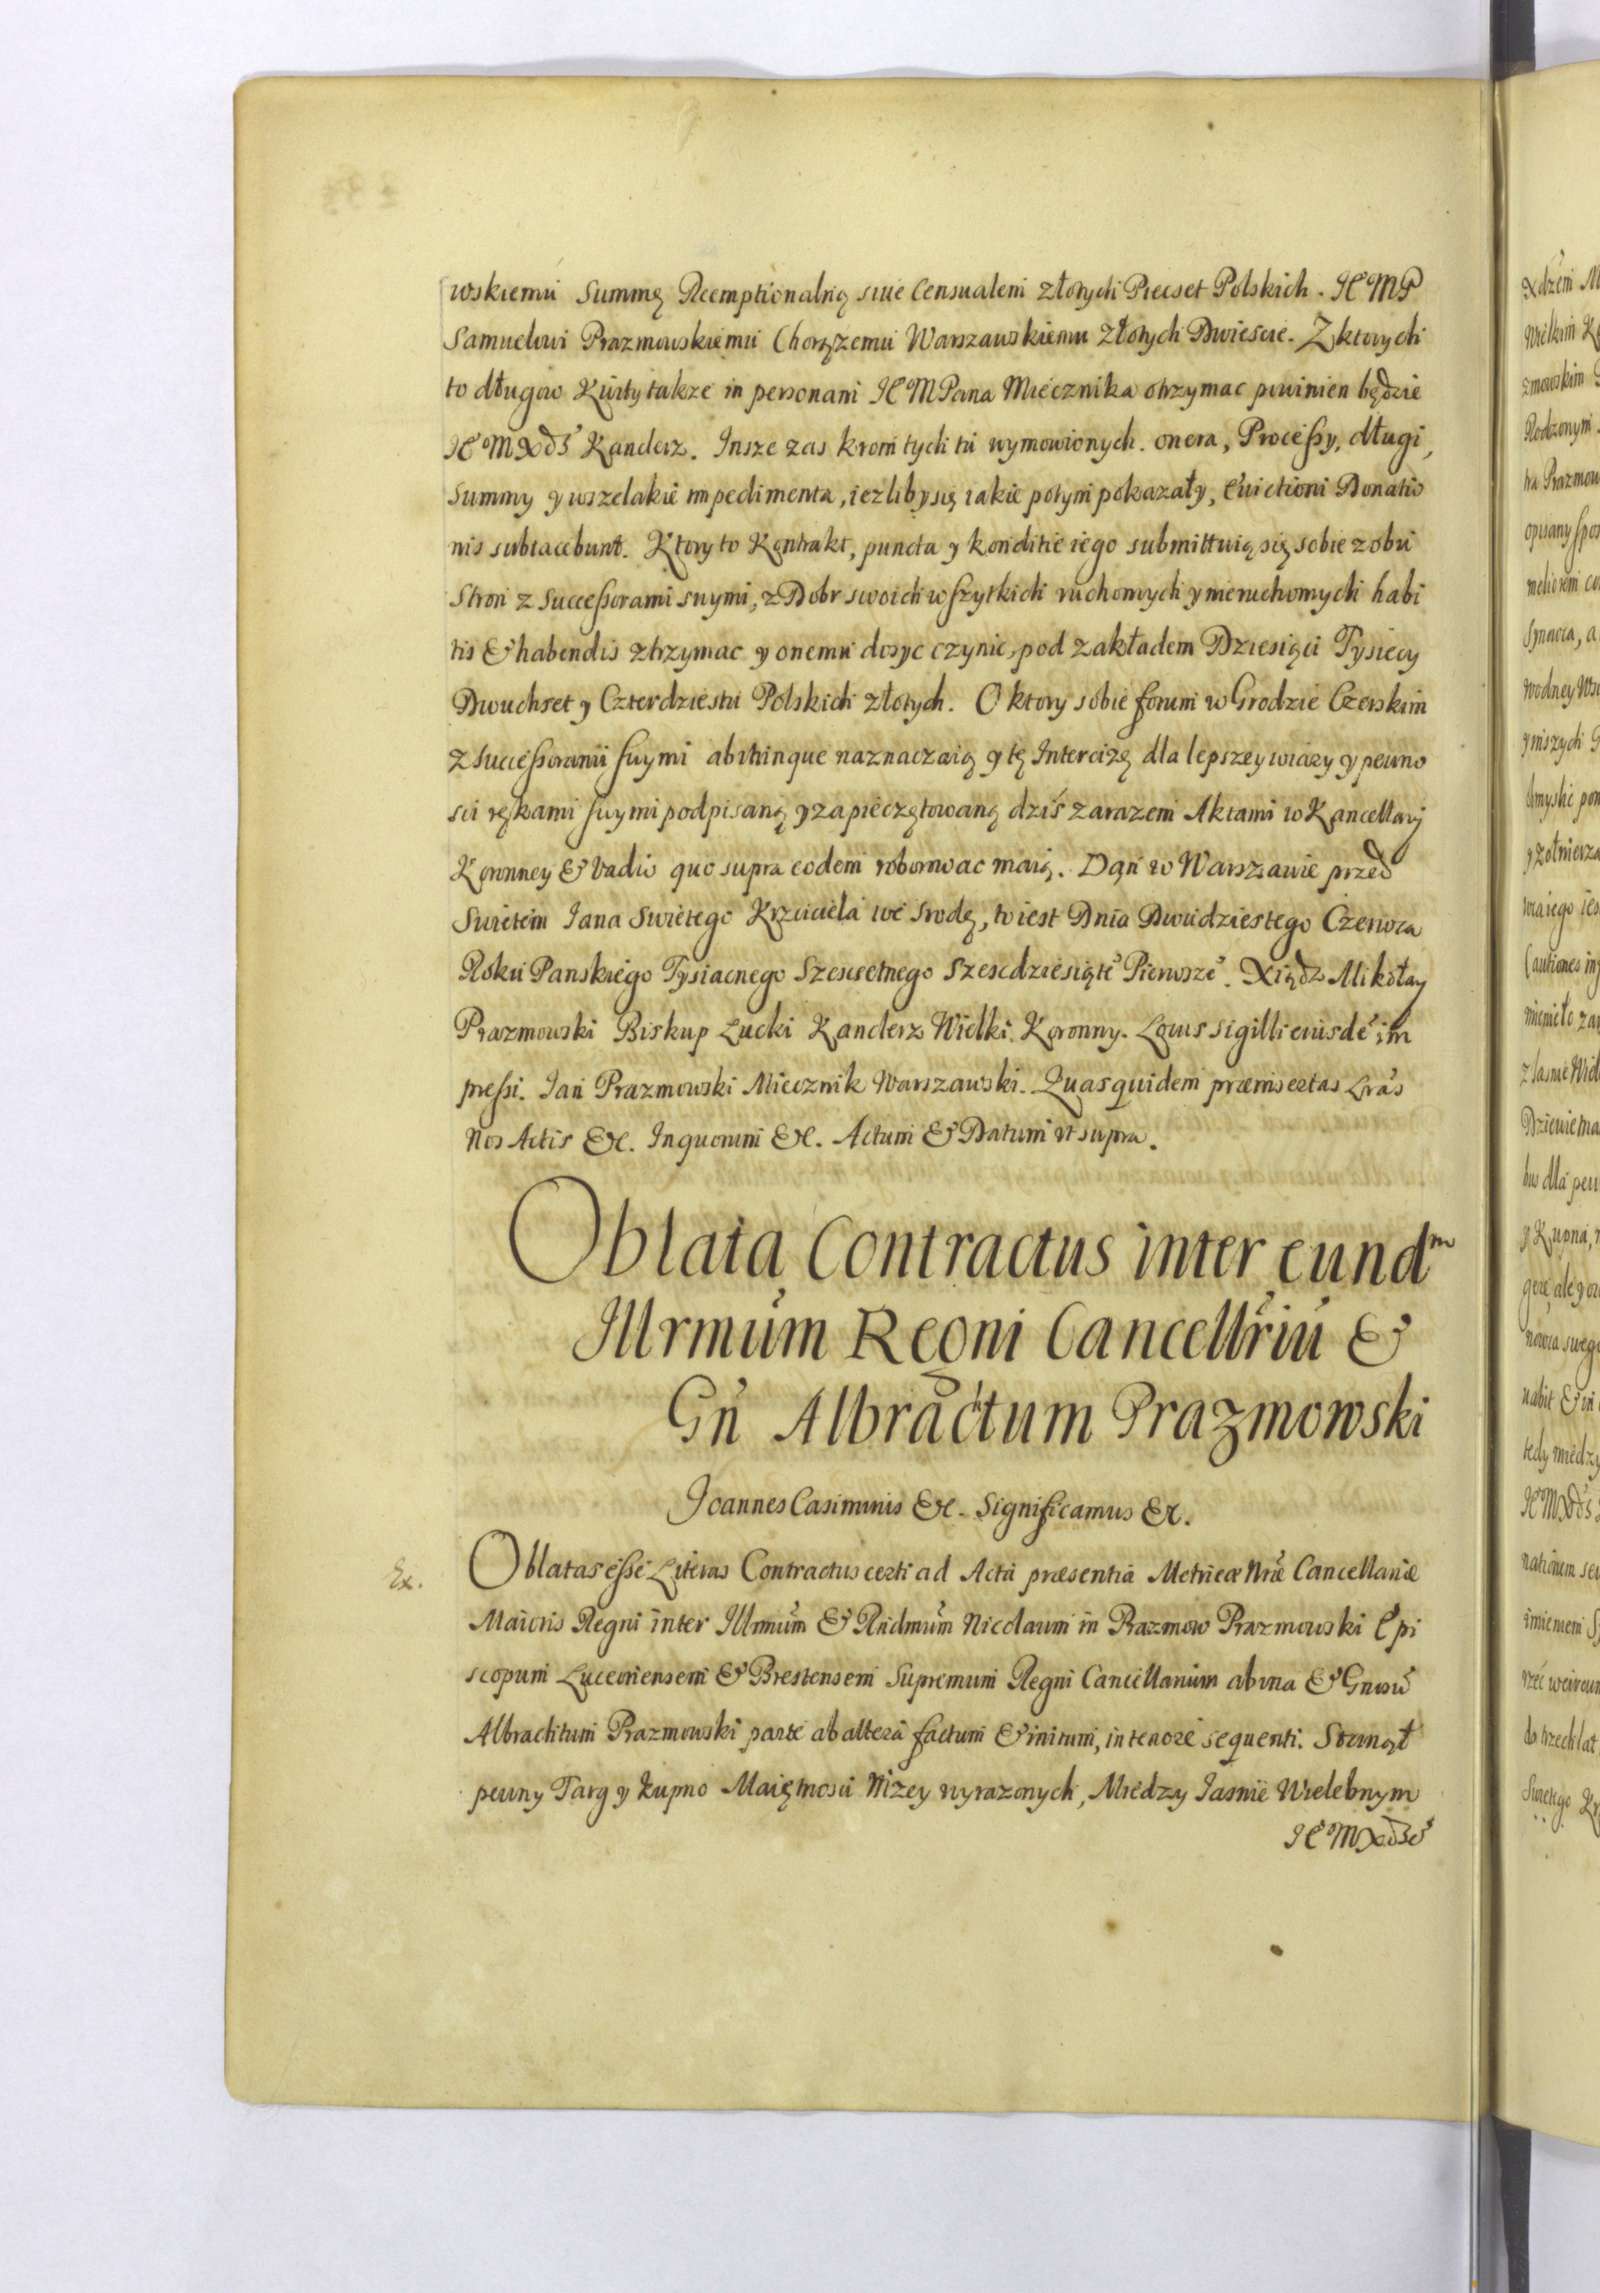 wskiemu Summę Reemptionalną siue Censualem złotych Piecset Polskich. JE͏ͦMP
Samuelowi Prazmowskiemu Chorązemu Warszawskiemu złotych Dwiescie. Z ktorych
to długow Kwity takze in personam JEͦM Pana Miecznika otrzymac powinien będzie
JEͦMXdz Kanclerz. Insze zas krom tych tu wymowionych. onera, Processy, długi,
Summy y wszelakie impedimenta, iezliby się iakie potym pokazały, Euictioni Donatio
nis subiacebunt. Ktory to Kontrakt, puncta y konditie iego submittuią się sobie z obu
Stron z Successorami swymi, z Dobr swoich wszytkich ruchomych y nieruchomych habi
tis & habendis ztrzymac y onemu dosyc czynic, pod zakładem Dziesięci Tysiecy
Dwuchset y Czterdziestu Polskich złotych. O ktory sobie forum w Grodzie Czerskim
z Successorami swymi abutrinque naznaczaią y tę Intercizę dla lepszey wiary y pewno
sci rękami swymi podpisaną y zapieczętowaną dziś zarazem Aktami w Kancellary
Koronney & Vadio quo supra eodem roborowac maią. Dan w Warszawie przed
Swietem Jana Swiętego Krzciciela we srodę, to iest Dnia Dwudziestego Czerwca
Roku Panskiego Tysiacnego Szescsetnego Szescdziesiąte͏ͦ Pierwszeͦ. Xiądz Mikołay
Prazmowski Biskup Lucki Kanclerz Wielki Koronny. Locus sigilli eiusde im
pressi. Jan Prazmowski Miecznik Warszawski. Quas quidem præinsertas Lras
Nos Actis &c. In quorum &c. Actum & Datum vt supra.
Oblata Contractus inter eundm
Illrmum Regni Cancellriu &
Gn Albrachtum Prazmowski
Joannes Casimirus &c. Significamus &c.
Ex.
Oblatas esse Literas Contractus certi ad Acta præsentia Metricæ Nræ Cancellariæ
Maioris Regni inter Illrmum & Rndmum Nicolaum in Prazmow Prazmowski Epi
scopum Luceoriensem & Brestensem Supremum Regni Cancellarium ab vna & Gnosu
Albrachtum Prazmowski parte ab altera factum & initum, in tenore sequenti. Stanął
pewny Targ y kupno Maiętnosci Nizey wyrazonych, Miedzy Jasnie Wielebnym
JEͦMXdzeͦ